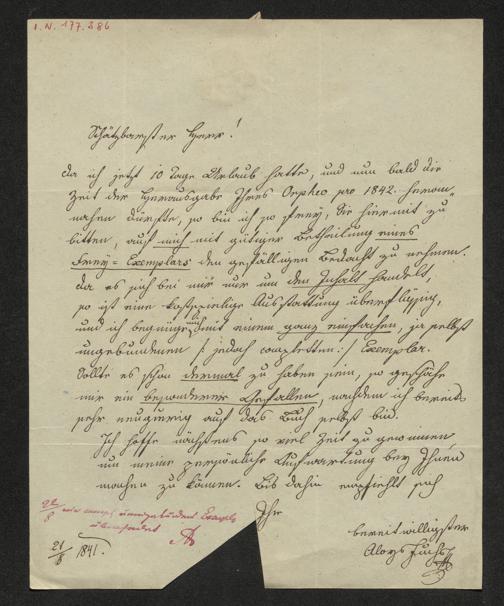 I. N. 177.386
Schätzbarster Herr!
Da ich jetzt 10 Tage Urlaub hatte, und nun bald die
Zeit der Herausgabe Ihres Orpheo pro 1842. heran-
nahen dürfte, so bin ich so frey, Sie hiermit zu
bitten, auf mich mit gütiger Betheilung eines
Frey-Exemplars den gefälligen Bedacht zu nehmen.
Da es sich bei mir nur um den Inhalt handelt,
so ist eine kostspielige Ausstattung überflüßig,
und ich begnüge mich mit einem ganz einfachen, ja selbst
ungebundenen /: jedoch completten :/ Exemplar.
Sollte es schon dermal zu haben sein, so geschähe
mir ein besonderer Gefallen, nachdem ich bereits
sehr neugierig auf das Buch selbst bin.
Ich hoffe nächstens so viel Zeit zu gewinnen
um meine persönliche Aufwartung bey Ihnen
machen zu können. Bis dahin empfiehlt sich
Ihr
bereitwilligster
Aloys Fuchs
22/8 ungebundenes Exempl
übersendet
21/8 1841.